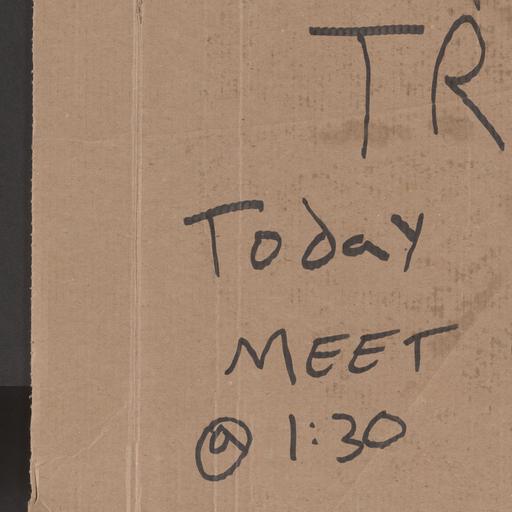 TR
Today
MEET
@ 1:30